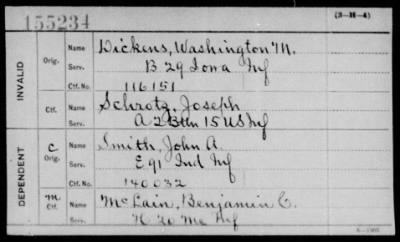 155234
(3-H-4)
INVALID
Orig.
Name Dickens, Washington M.
Serv. B 29 Iowa Inf
Ctf. No. 116151
Ctf.
Name Schrotz, Joseph
Serv. A 2 Bttn 15 US Inf
DEPENDENT
C Orig.
Name Smith, John A.
Serv. E 91 Ind Inf
Ctf. No. 140032
M Ctf.
Name McLain, Benjamin C.
Serv. H 20 Me Inf